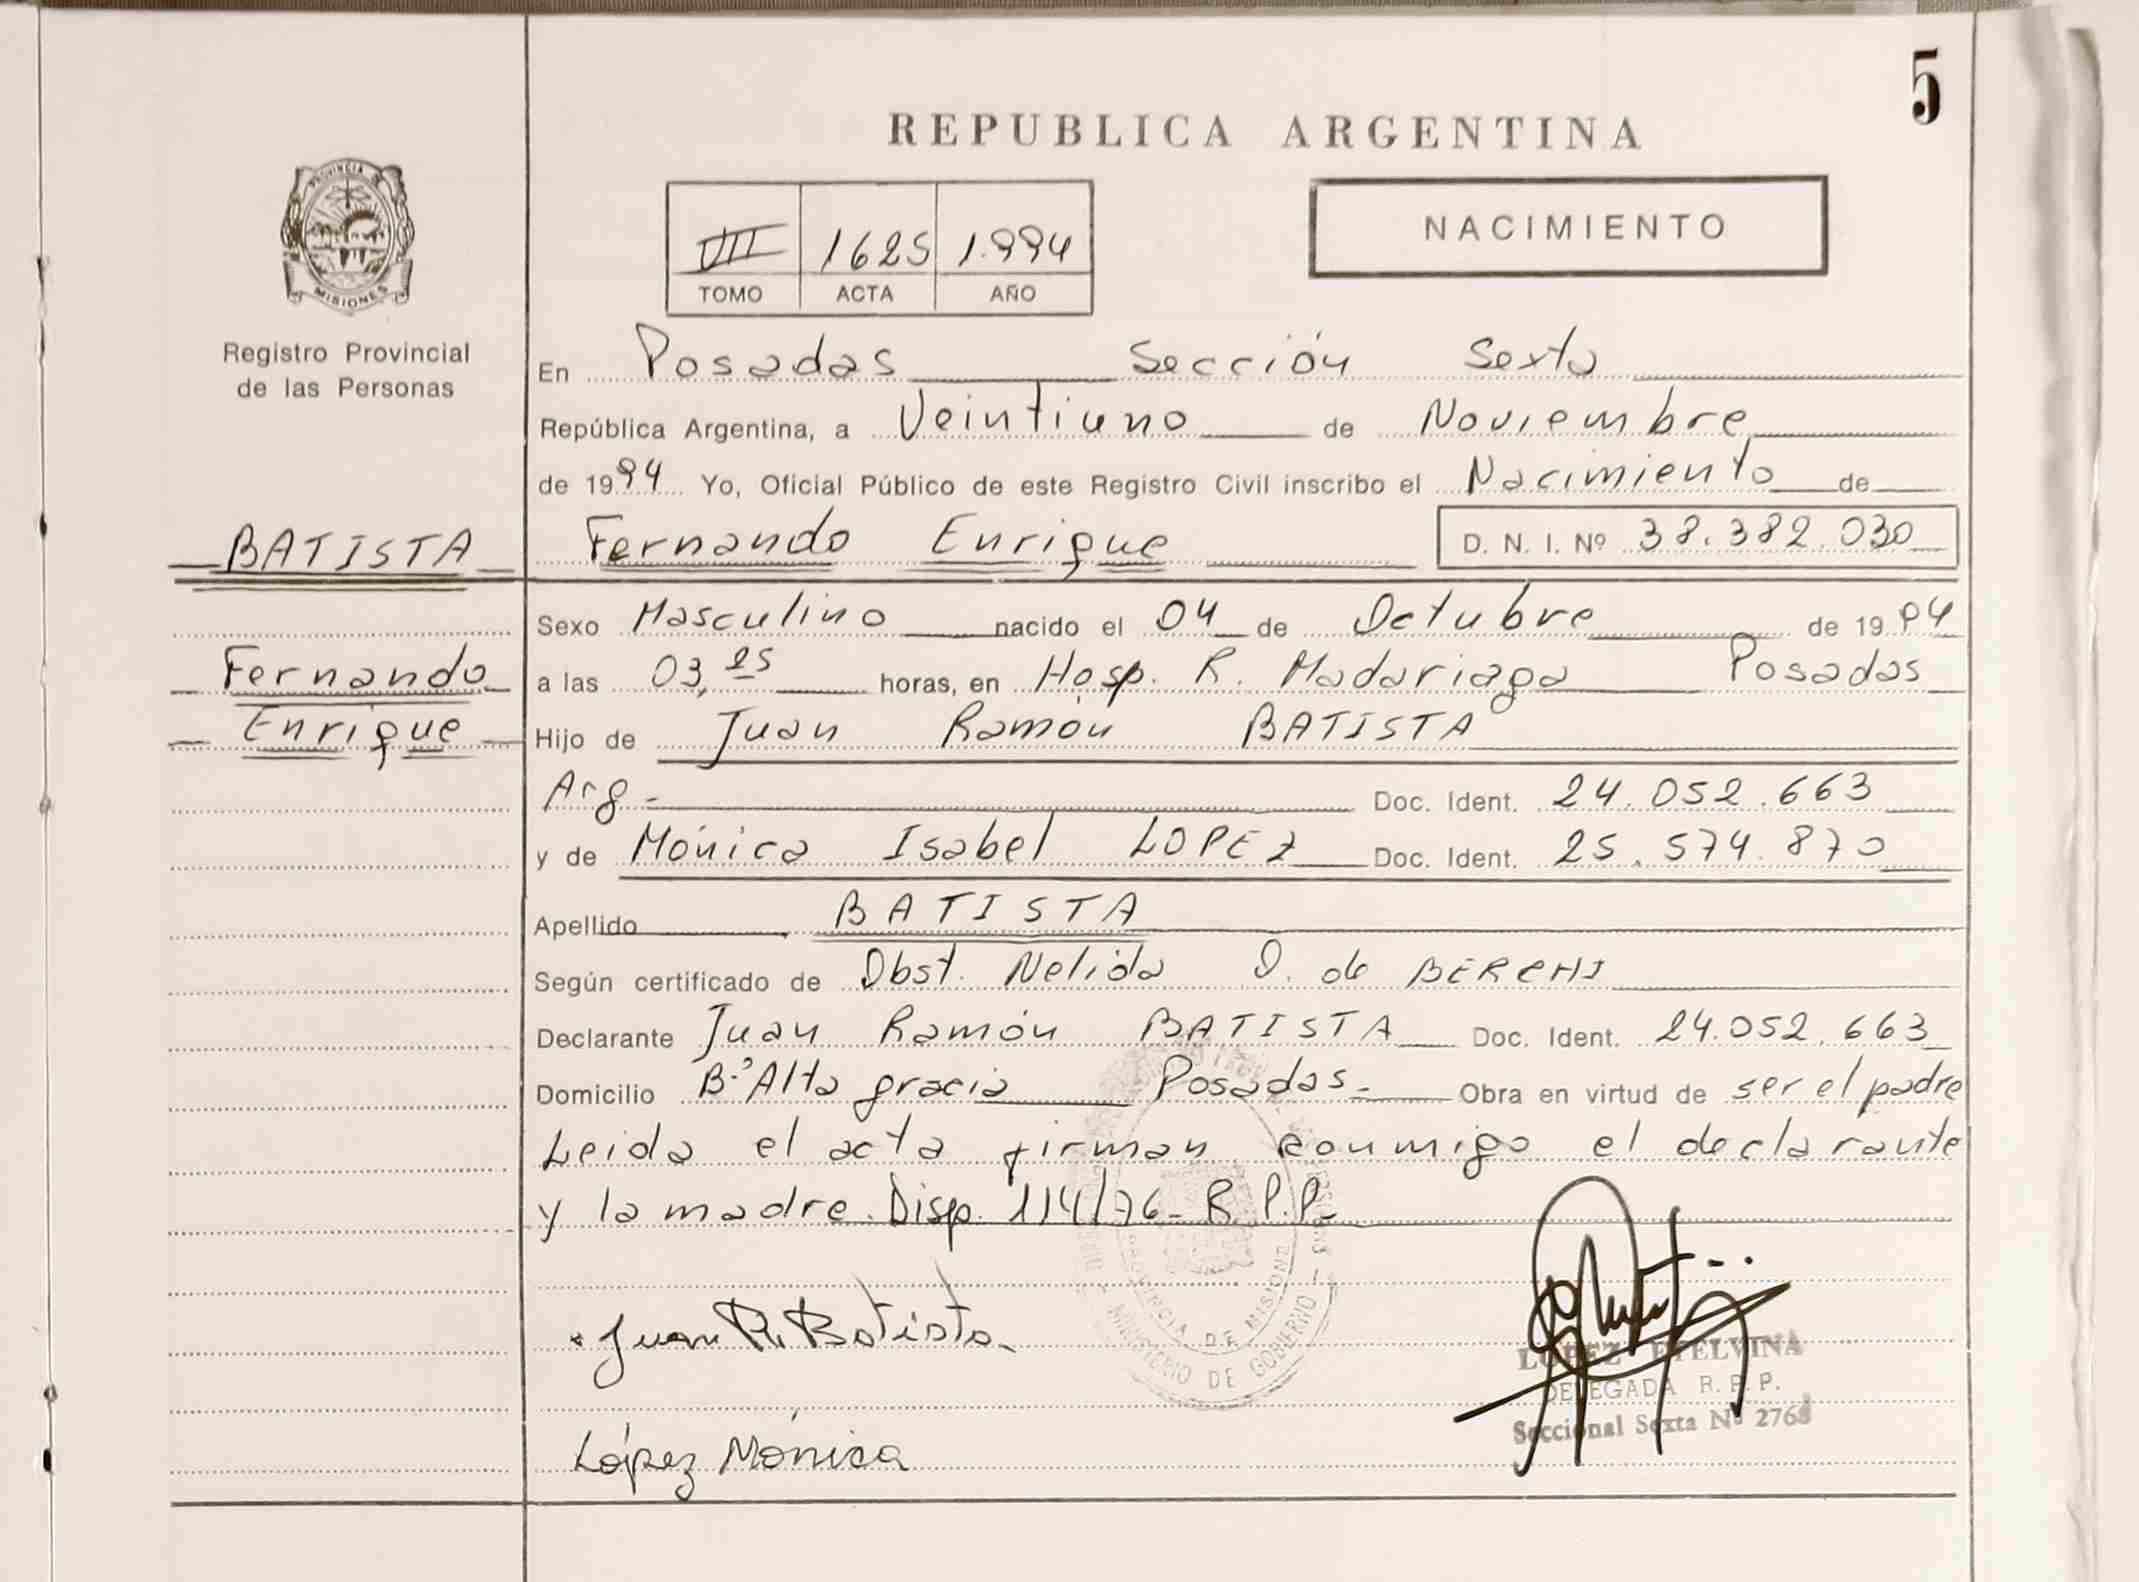 5
REPUBLICA ARGENTINA
PROVINCIA DE
MISIONES
Registro Provincial
de las Personas
VIII 1625 1.994
TOMO ACTA AÑO
NACIMIENTO
En Posadas Sección Sexta
República Argentina, a Veintiuno de Noviembre
de 1994 Yo, Oficial Público de este Registro Civil inscribo el Nacimiento de
BATISTA Fernando Enrique D. N. I. Nº 38.382.030
Sexo Masculino nacido el 04 de Octubre de 1994
Fernando a las 03,25 horas, en Hosp. R. Madariaga Posadas
Enrique Hijo de Juan Ramón BATISTA
Arg.- Doc. Ident. 24.052.663
y de Mónica Isabel LOPEZ Doc. Ident. 25.574.870
Apellido BATISTA
Según certificado de Obst. Nelida O. de BERCHI
Declarante Juan Ramón BATISTA Doc. Ident. 24.052.663
Domicilio B.º Alta gracia Posadas.- Obra en virtud de ser el padre
Leida el acta firman conmigo el declarante
y la madre. Disp. 114/76- R.P.P.-
PROVINCIA DE MISIONES
MINISTERIO DE GOBIERNO
Juan R. Batista.
LOPEZ ETELVINA
DELEGADA R. P. P.
Seccional Sexta Nº 2768
López Mónica